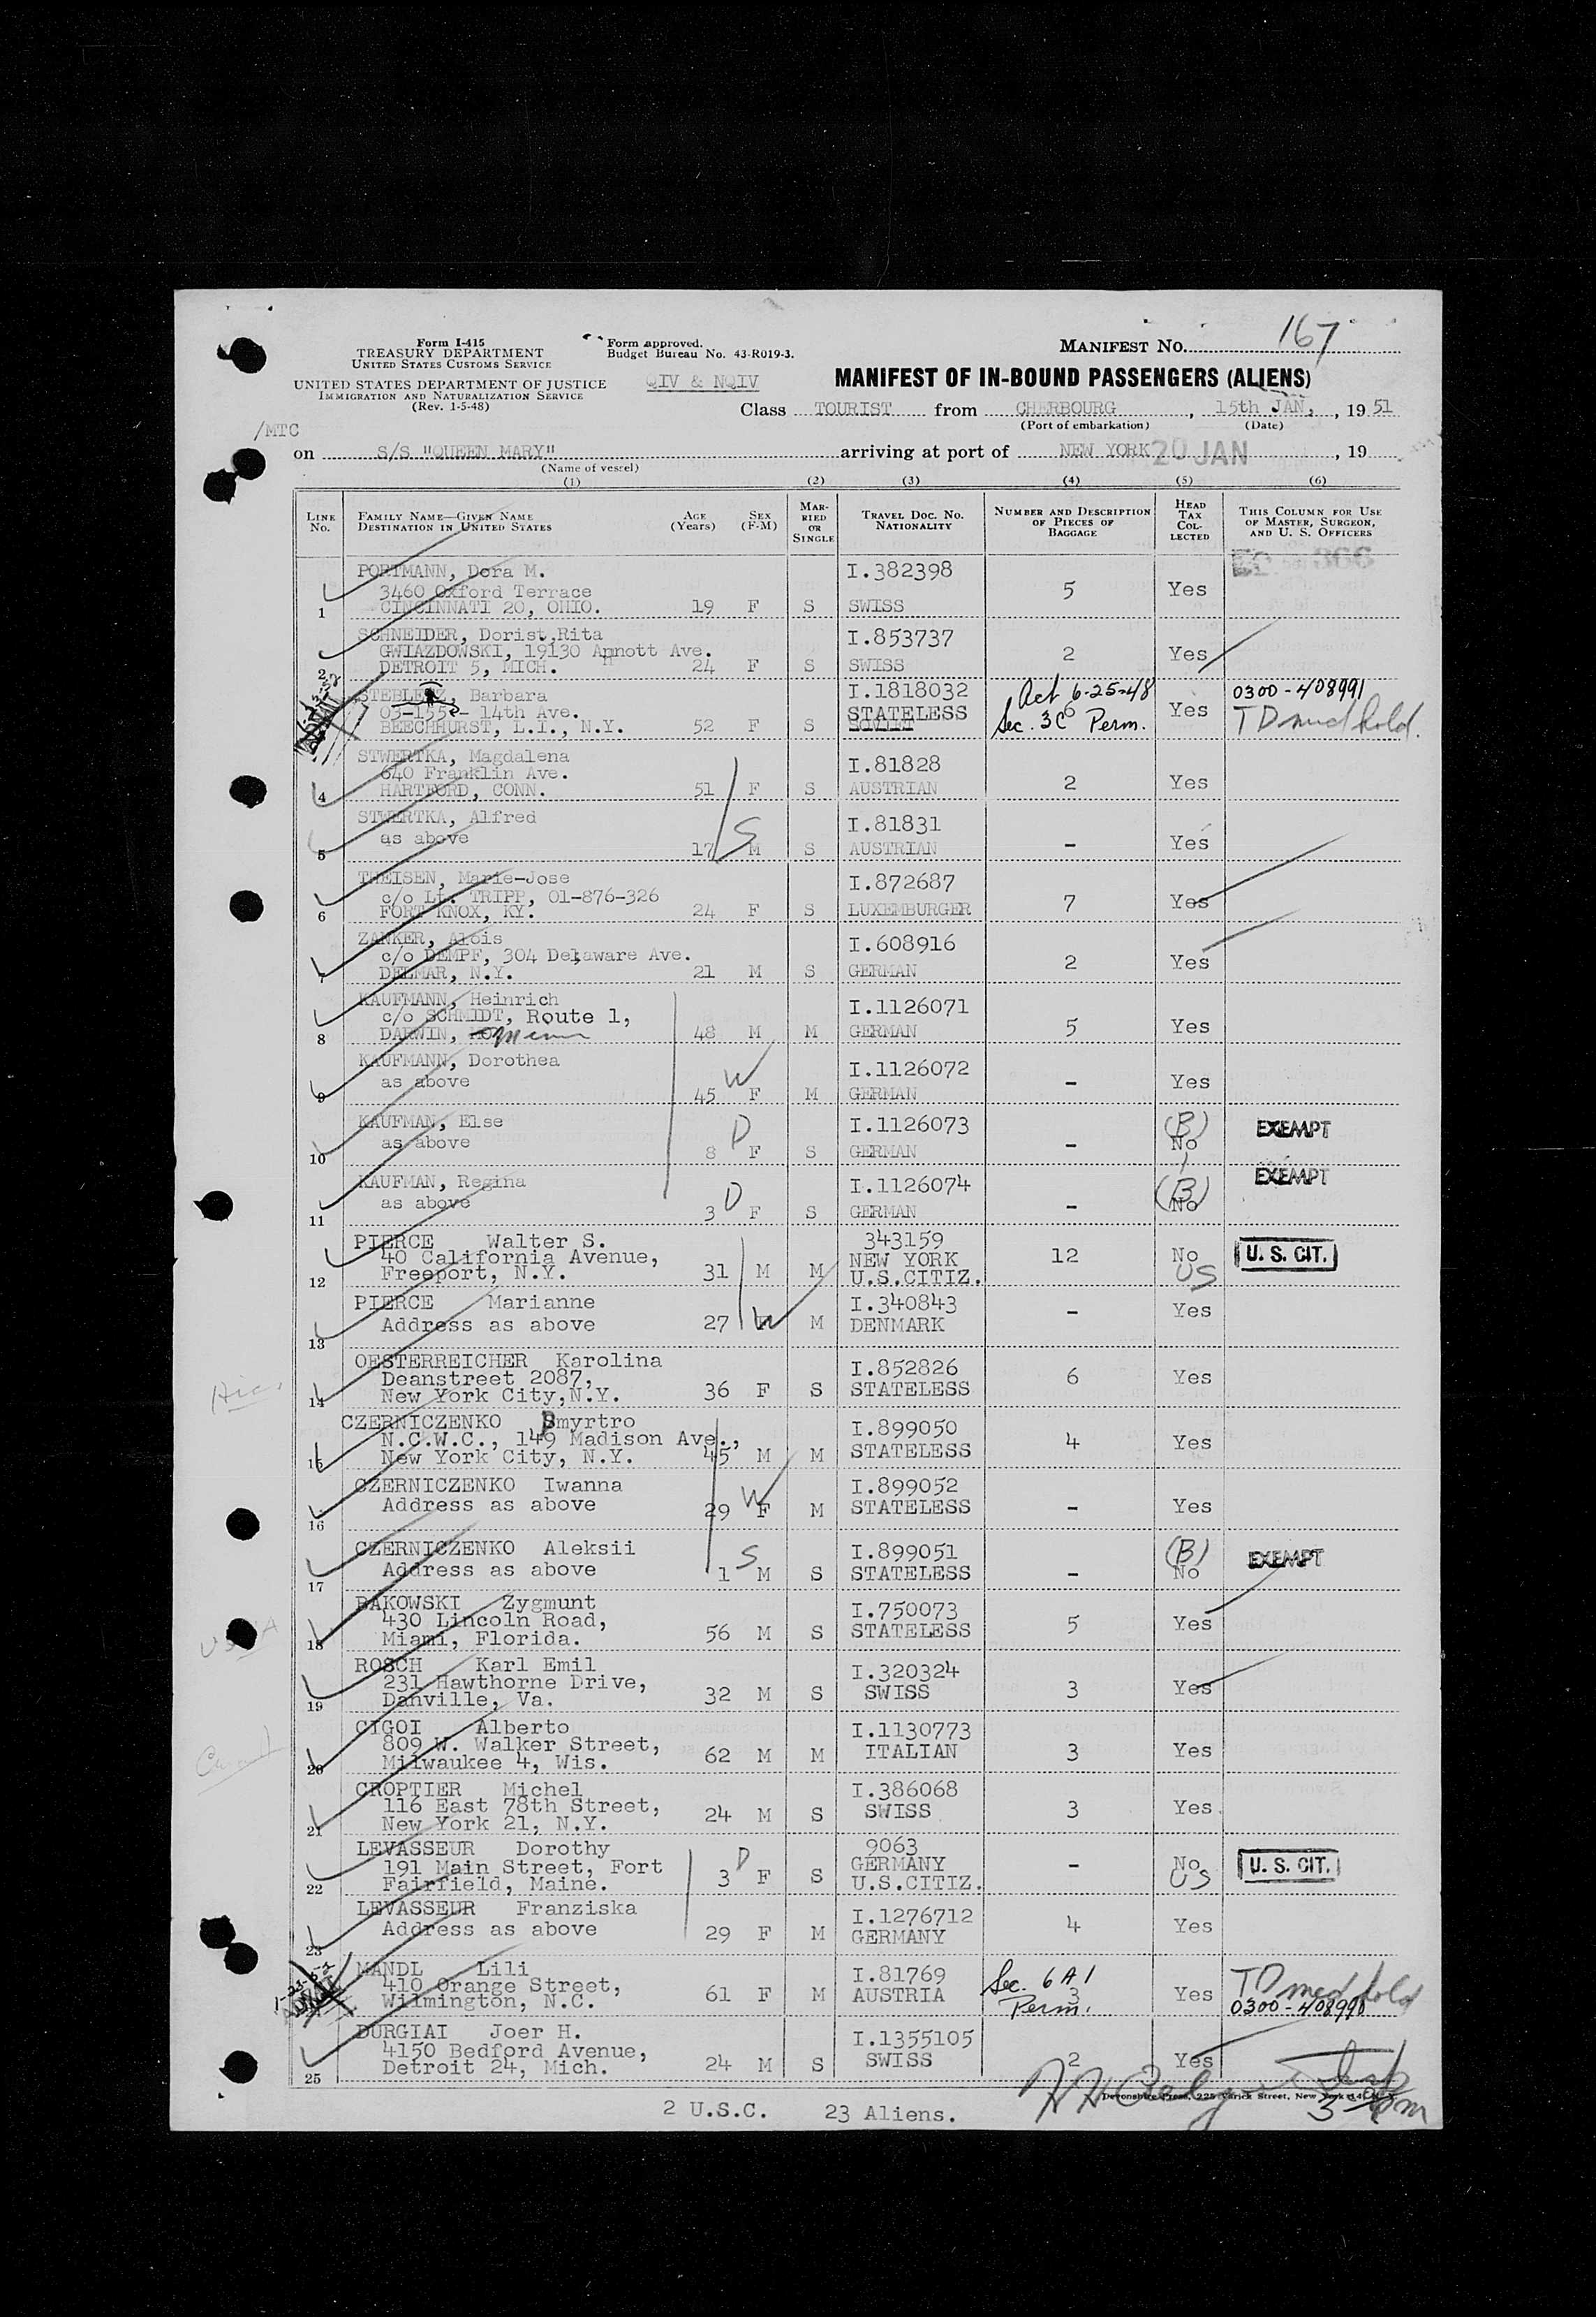 167
Form I-415
TREASURY DEPARTMENT
UNITED STATES CUSTOMS SERVICE
UNITED STATES DEPARTMENT OF JUSTICE
IMMIGRATION AND NATURALIZATION SERVICE
(Rev. 1-5-48)
Form approved.
Budget Bureau No. 43-R019-3.
QIV & NQIV
MANIFEST NO.
MANIFEST OF IN-BOUND PASSENGERS (ALIENS)
Class TOURIST from CHERBOURG, 15th JAN, 1951
(Port of embarkation) (Date)
/MTC
on S/S "QUEEN MARY" arriving at port of NEW YORK 20 JAN, 19
(Name of vessel)
(1) (2) (3) (4) (5) (6)
LINE No. FAMILY NAME—GIVEN NAME DESTINATION IN UNITED STATES AGE (Years) SEX (F-M) MARRIED OR SINGLE TRAVEL DOC. NO. NATIONALITY NUMBER AND DESCRIPTION OF PIECES OF BAGGAGE HEAD TAX COLLECTED THIS COLUMN FOR USE OF MASTER, SURGEON, AND U. S. OFFICERS
PORTMANN, Dora M. I.382398
3460 Oxford Terrace 5 Yes
1 CINCINNATI 20, OHIO. 19 F S SWISS
SCHNEIDER, Dorist,Rita I.853737
GWIAZDOWSKI, 19130 Annott Ave. 2 Yes
2 DETROIT 5, MICH. 24 F S SWISS
Barbara I.1818032 Act 6-25-48 0300-408991
14th Ave. STATELESS 6 Yes
BEECHHURST, L.I., N.Y. 52 F S SOVIET Sec. 3C Perm. TD med hold.
STWERTKA, Magdalena I.81828
640 Franklin Ave. 2 Yes
4 HARTFORD, CONN. 51 F S AUSTRIAN
STWERTKA, Alfred I.81831
as above - Yes
5 17 S M S AUSTRIAN
THEISEN, Marie-Jose I.872687
c/o Lt. TRIPP, 01-876-326 7 Yes
6 FORT KNOX, KY. 24 F S LUXEMBURGER
ZANKER, Alois I.608916
c/o DEMPF, 304 Delaware Ave. 2 Yes
7 DELMAR, N.Y. 21 M S GERMAN
KAUFMANN, Heinrich I.1126071
c/o SCHMIDT, Route 1, 5 Yes
8 DARWIN, Minn 48 M M GERMAN
KAUFMANN, Dorothea I.1126072
as above W - Yes
9 45 F M GERMAN
KAUFMAN, Else I.1126073 (B) EXEMPT
as above D - No
10 8 F S GERMAN
KAUFMAN, Regina I.1126074 EXEMPT
as above D - (B) No
11 3 F S GERMAN
PIERCE Walter S. 343159
40 California Avenue, NEW YORK 12 No U. S. CIT.
12 Freeport, N.Y. 31 M M U.S.CITIZ. US
PIERCE Marianne I.340843 - Yes
13 Address as above 27 W F M DENMARK
OESTERREICHER Karolina I.852826
Deanstreet 2087, 6 Yes
14 New York City,N.Y. 36 F S STATELESS
CZERNICZENKO Dmyrtro I.899050
N.C.W.C., 149 Madison Ave., 4 Yes
15 New York City, N.Y. 45 M M STATELESS
CZERNICZENKO Iwanna I.899052
Address as above W - Yes
16 29 F M STATELESS
CZERNICZENKO Aleksii I.899051 (B) EXEMPT
Address as above S - No
17 1 M S STATELESS
BAKOWSKI Zygmunt I.750073
430 Lincoln Road, 5 Yes
18 Miami, Florida. 56 M S STATELESS
ROSCH Karl Emil I.320324
231 Hawthorne Drive, 3 Yes
19 Danville, Va. 32 M S SWISS
CIGOI Alberto I.1130773
809 W. Walker Street, 3 Yes
20 Milwaukee 4, Wis. 62 M M ITALIAN
CROPTIER Michel I.386068
116 East 78th Street, 3 Yes.
21 New York 21, N.Y. 24 M S SWISS
LEVASSEUR Dorothy 9063
191 Main Street, Fort D GERMANY - No U. S. CIT.
22 Fairfield, Maine. 3 F S U.S.CITIZ. US
LEVASSEUR Franziska I.1276712
Address as above 4 Yes
23 29 F M GERMANY
MANDL Lili I.81769 Sec. 6A1 TD med hold
410 Orange Street, 3 Yes
Wilmington, N.C. 61 F M AUSTRIA Perm. 0300-408990
DURGIAI Joer H. I.1355105
4150 Bedford Avenue, 2 Yes
25 Detroit 24, Mich. 24 M S SWISS
Devonshire Press, 225 Varick Street, New York 14, N. Y.
2 U.S.C. 23 Aliens.